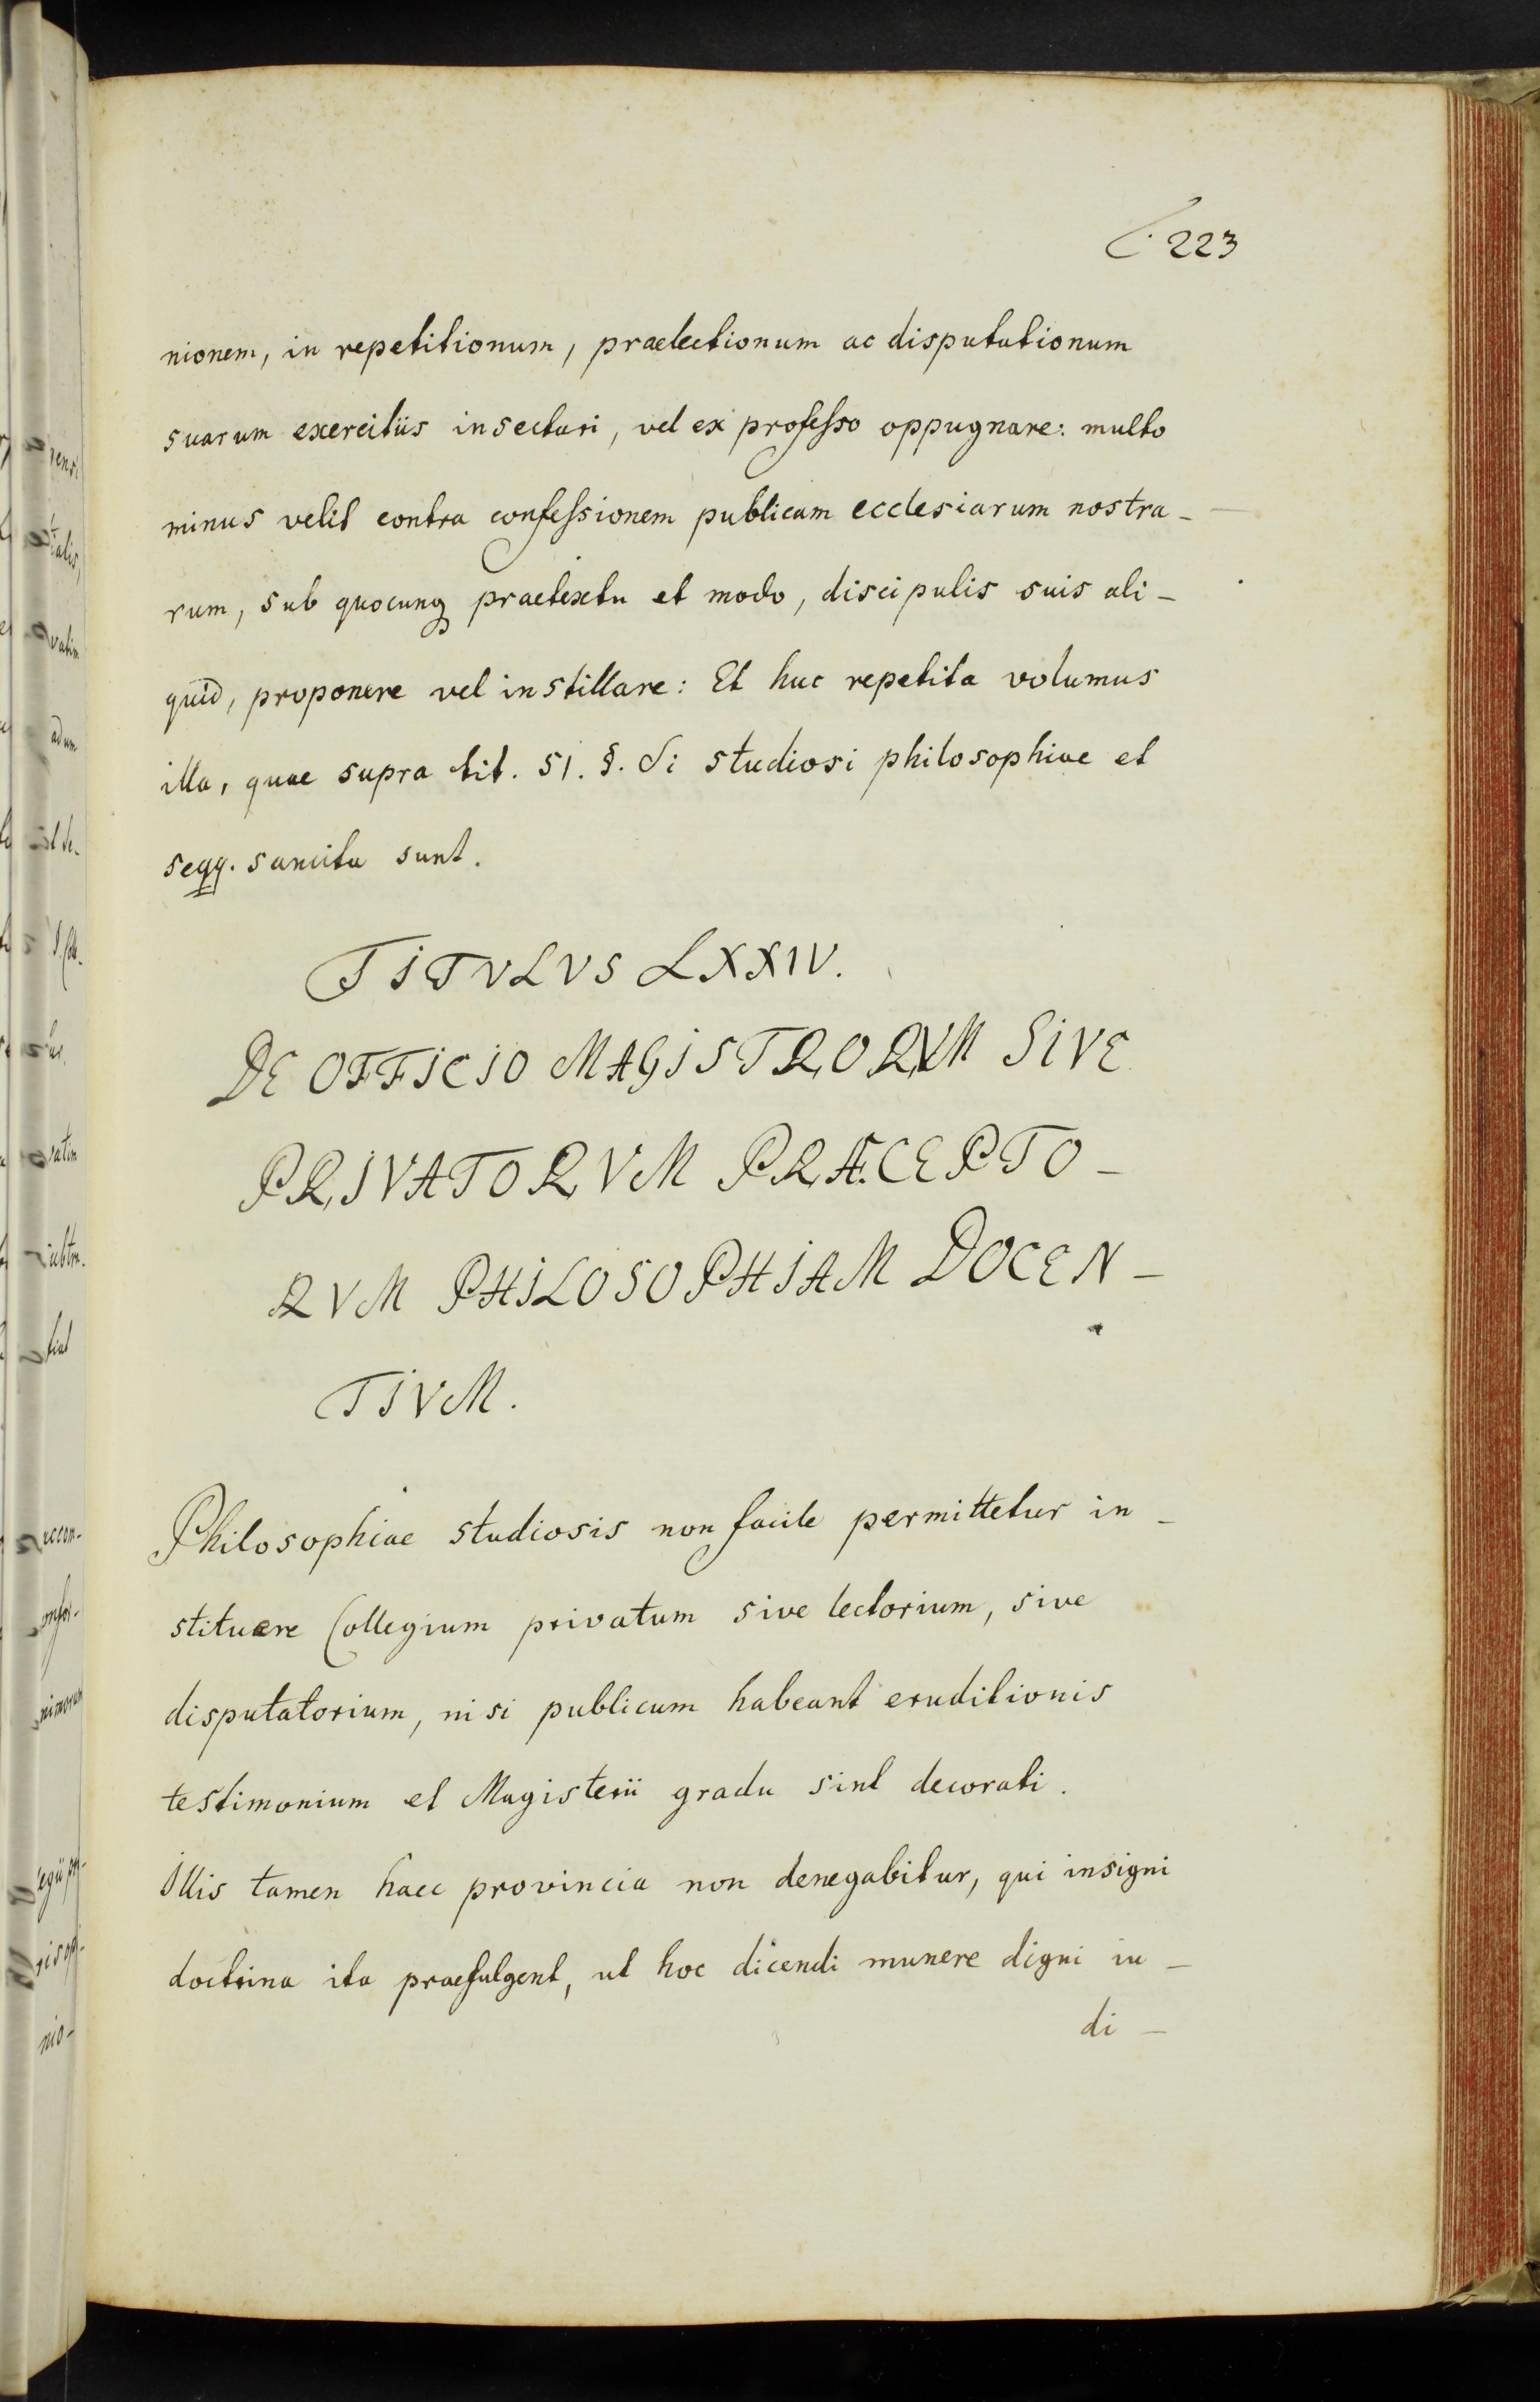 223
nionem, in repetitionum, praelectionum ac disputationum
suarum exercitiis insectari, vel ex professo oppugnare: multo
minus velit contra confessionem publicam ecclesiarum nostra-
rum, sub quocunq praetextu et modo, discipulis suis ali-
quid, proponere vel instillare: Et huc repetita volumus
illa, quae supra tit. 51. §. Si studiosi philosophiae et
seqq. sancita sunt.
TITVLVS LXXIV.
DE OFFICIO MAGISTRORVM SIVE
PRIVATORVM PRÆCEPTO-
RVM PHILOSOPHIAM DOCEN-
TIVM.
Philosophiae studiosis non facile permittetur in-
stituere Collegium privatum sive lectorium, sive
disputatorium, nisi publicum habeant eruditionis
testimonium et Magisterii gradu sint decorati.
Illis tamen haec provincia non denegabitur, qui insigni
doctrina ita praefulgent, ut hoc dicendi munere digni iu-
di-